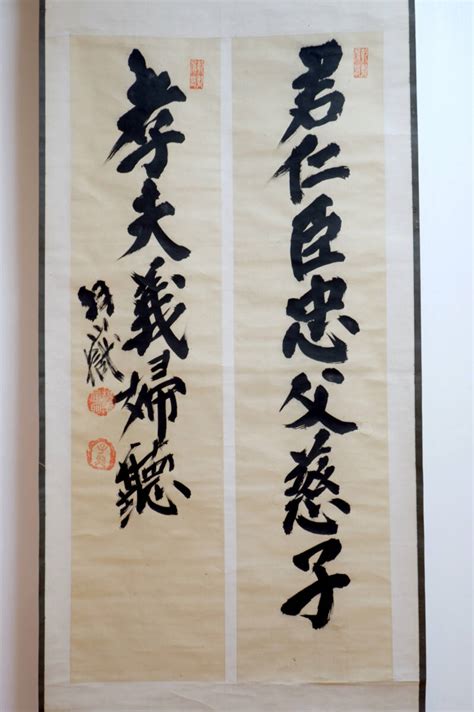 君仁臣忠父慈子
孝夫義婦聽